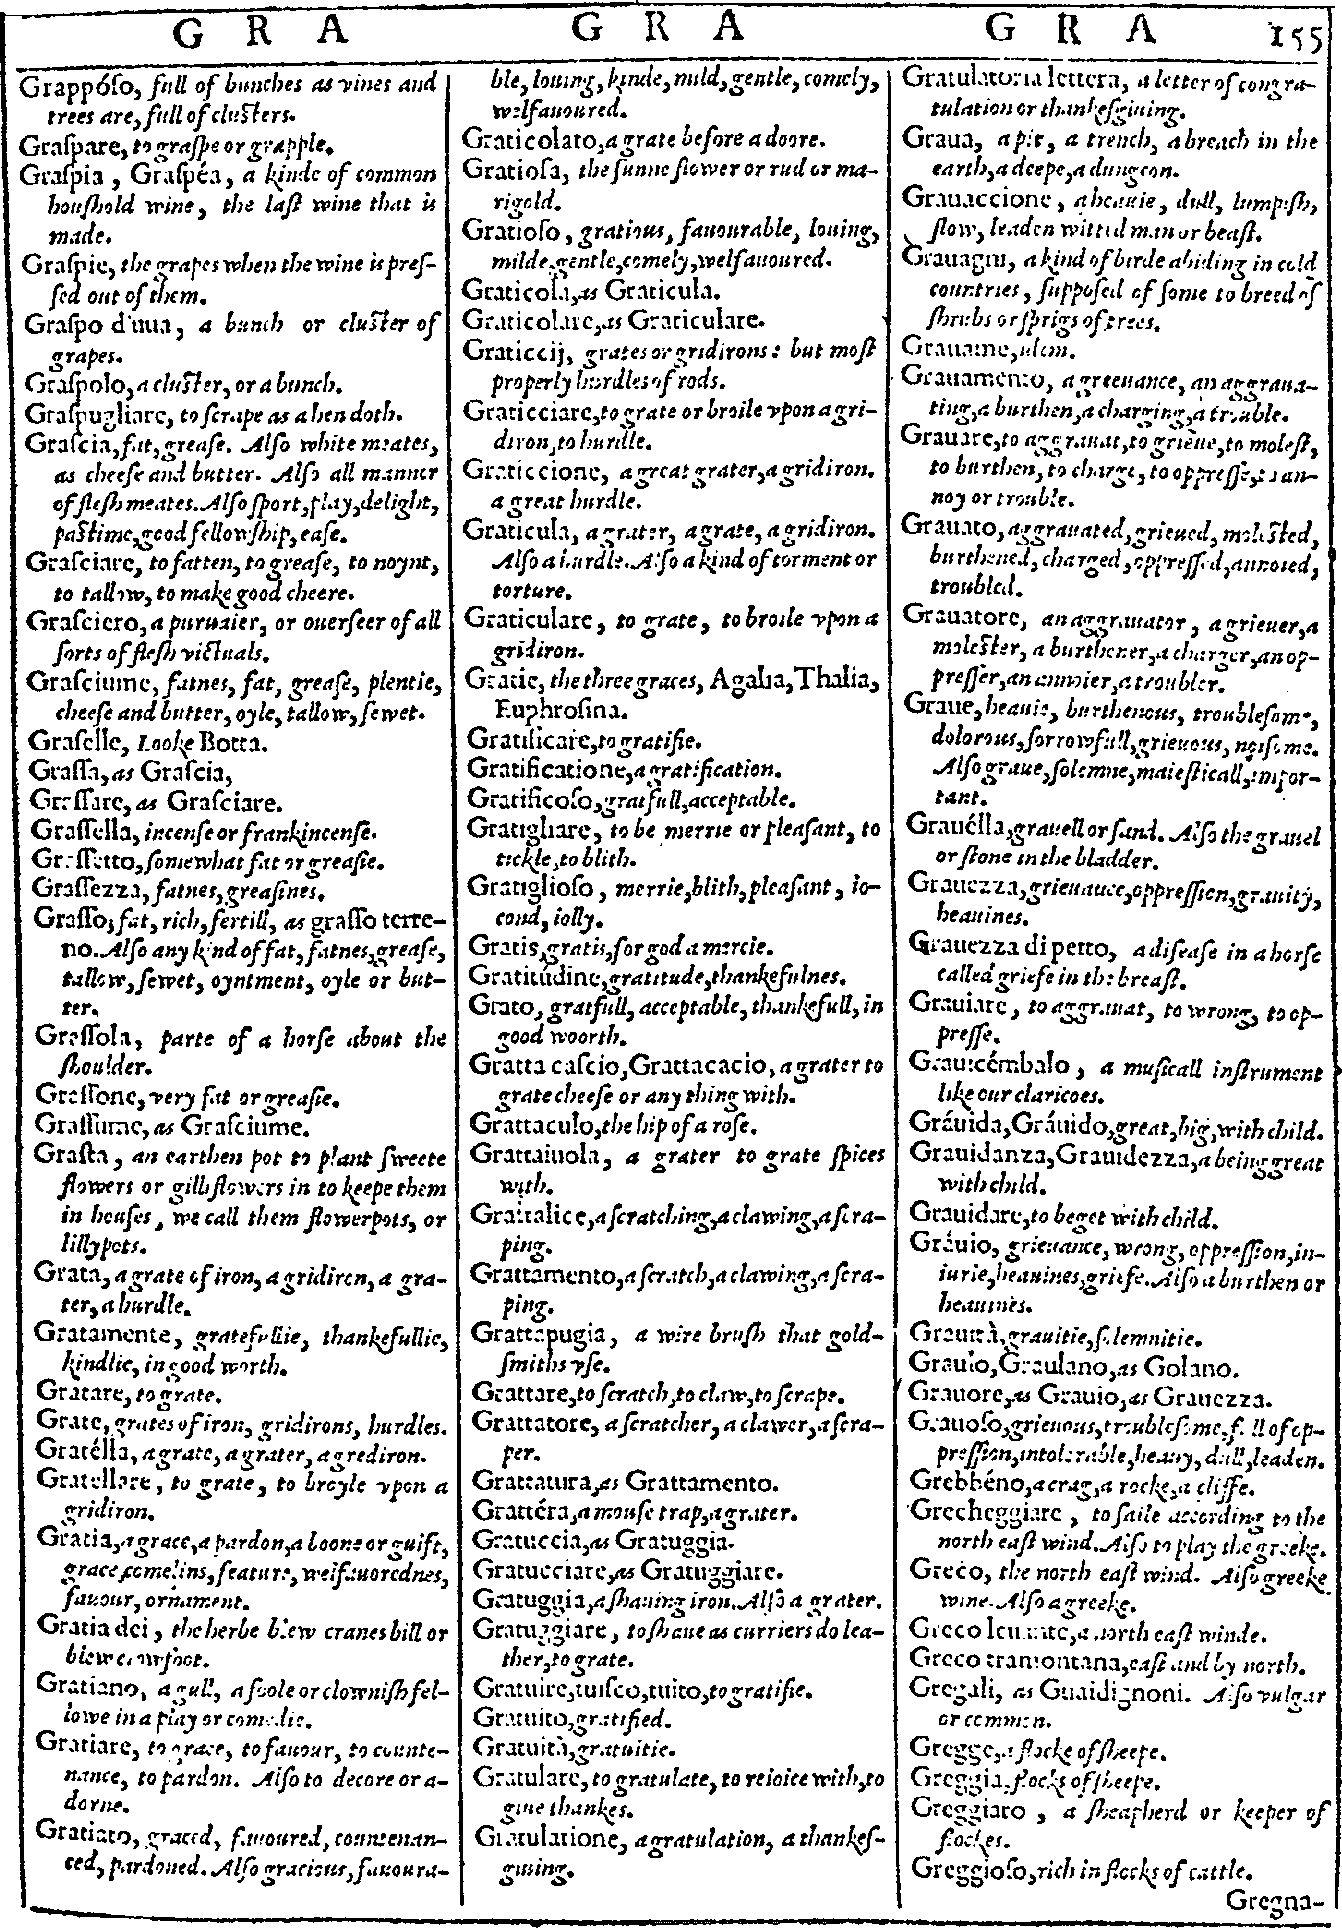 G R A G R A G R A 155
Grappóſo, full of bunches as vines and
trees are, full of cluſters.
Graſpare, to graſpe or grapple.
Graſpia, Graſpéa, a kinde of common
houſhold wine, the laſt wine that is
made.
Graſpie, the grapes when the wine is preſ-
ſed out of them.
Graſpo d'uua, a bunch or cluſter of
grapes.
Graſpolo, a cluſter, or a bunch.
Graſpugliare, to ſcrape as a hen doth.
Graſcia, fat, greaſe. Alſo white meates,
as cheeſe and butter. Alſo all manner
of fleſh meates. Alſo ſport, play, delight,
paſtime, good fellowſhip, eaſe.
Graſciare, to fatten, to greaſe, to noynt,
to tallow, to make good cheere.
Graſciero, a puruaier, or ouerſeer of all
ſorts of fleſh victuals.
Graſciume, fatnes, fat, greaſe, plentie,
cheeſe and butter, oyle, tallow, ſewet.
Graſelle, Looke Botta.
Graſſa, as Graſcia,
Graſſare, as Graſciare.
Graſſella, incenſe or frankincenſe.
Graſſetto, ſomewhat fat or greaſie.
Graſſezza, fatnes, greaſines.
Graſſo, fat, rich, fertill, as graſſo terre-
no. Alſo any kind of fat, fatnes, greaſe,
tallow, ſewet, oyntment, oyle or but-
ter.
Graſſola, parte of a horſe about the
ſhoulder.
Graſſone, very fat or greaſie.
Graſſume, as Graſciume.
Graſta, an earthen pot to plant ſweete
flowers or gilliflowers in to keepe them
in houſes, we call them flowerpots, or
lillypots.
Grata, a grate of iron, a gridiron, a gra-
ter, a hurdle.
Gratamente, gratefullie, thankefullie,
kindlie, in good worth.
Gratare, to grate.
Grate, grates of iron, gridirons, hurdles.
Gratélla, a grate, a grater, a grediron.
Gratellare, to grate, to broyle vpon a
gridiron.
Gratia, a grace, a pardon, a boone or guift,
grace, comelins, feature, welfauorednes,
fauour, ornament.
Gratia dei, the herbe blew cranes bill or
blew crowfoot.
Gratiano, a gull, a foole or clowniſh fel-
lowe in a play or comedie.
Gratiare, to grace, to fauour, to counte-
nance, to pardon. Alſo to decore or a-
dorne.
Gratiato, graced, fauoured, countenan-
ced, pardoned. Alſo gracious, fauoura-
ble, louing, kinde, mild, gentle, comely,
welfauoured.
Graticolato, a grate before a doore.
Gratioſa, the ſunne flower or rud or ma-
rigold.
Gratioſo, gratious, fauourable, louing,
milde, gentle, comely, welfauoured.
Graticola, as Graticula.
Graticolare, as Graticulare.
Graticcij, grates or gridirons: but moſt
properly hurdles of rods.
Graticciare, to grate or broile vpon a gri-
diron, to hurdle.
Graticcione, a great grater, a gridiron.
a great hurdle.
Graticula, a grater, a grate, a gridiron.
Alſo a hurdle. Alſo a kind of torment or
torture.
Graticulare, to grate, to broile vpon a
gridiron.
Gratie, the three graces, Agalia, Thalia,
Euphroſina.
Gratificare, to gratifie.
Gratificatione, a gratification.
Gratificoſo, gratfull, acceptable.
Gratigliare, to be merrie or pleaſant, to
tickle, to blith.
Gratiglioſo, merrie, blith, pleaſant, io-
cond, iolly.
Gratis, gratis, for god a mercie.
Gratitúdine, gratitude, thankefulnes.
Grato, gratfull, acceptable, thankefull, in
good woorth.
Gratta caſcio, Grattacacio, a grater to
grate cheeſe or any thing with.
Grattaculo, the hip of a roſe.
Grattaiuola, a grater to grate ſpices
with.
Grattalice, a ſcratching, a clawing, a ſcra-
ping.
Grattamento, a ſcratch, a clawing, a ſcra-
ping.
Grattapugia, a wire bruſh that gold-
ſmiths vſe.
Grattare, to ſcratch, to claw, to ſcrape.
Grattatore, a ſcratcher, a clawer, a ſcra-
per.
Grattatura, as Grattamento.
Grattéra, a mouſe trap, a grater.
Gratuccia, as Gratuggia.
Gratucciare, as Gratuggiare.
Gratuggia, a ſhauing iron. Alſo a grater.
Gratuggiare, to ſhaue as curriers do lea-
ther, to grate.
Gratuire, tuiſco, tuito, to gratifie.
Gratuito, gratified.
Gratuità, gratuitie.
Gratulare, to gratulate, to reioice with, to
giue thankes.
Gratulatione, a gratulation, a thankeſ-
giuing.
Gratulatoria lettera, a letter of congra-
tulation or thankeſgiuing.
Graua, a pit, a trench, a breach in the
earth, a deepe, a dungeon.
Grauaccione, a heauie, dull, lumpiſh,
ſlow, leaden witted man or beaſt.
Grauagni, a kind of birde abiding in cold
countries, ſuppoſed of ſome to breed of
ſhrubs or ſprigs of trees.
Grauame, idem.
Grauamento, a greeuance, an aggraua-
ting, a burthen, a charging, a trouble.
Grauare, to aggrauat, to grieue, to moleſt,
to burthen, to charge, to oppreſſe, to an-
noy or trouble.
Grauato, aggrauated, grieued, moleſted,
burthened, charged, oppreſſed, annoied,
troubled.
Grauatore, an aggrauator, a grieuer, a
moleſter, a burthener, a charger, an op-
preſſer, an annoier, a troubler.
Graue, heauie, burthenous, troubleſome,
dolorous, ſorrowfull, grieuous, noiſome.
Alſo graue, ſolemne, maieſticall, impor-
tant.
Grauélla, grauell or ſand. Alſo the grauel
or ſtone in the bladder.
Grauezza, grieuance, oppreſſion, grauity,
heauines.
Grauezza di petto, a diſeaſe in a horſe
called griefe in the breaſt.
Grauiare, to aggrauat, to wrong, to op-
preſſe.
Grauicémbalo, a muſicall inſtrument
like our claricoes.
Gráuida, Gráuido, great, big, with child.
Grauidanza, Grauidezza, a being great
with child.
Grauidare, to beget with child.
Gráuio, grieuance, wrong, oppreſſion, in-
iurie, heauines, griefe. Alſo a burthen or
heauines.
Grauità, grauitie, ſolemnitie.
Graulo, Graulano, as Golano.
Grauore, as Grauio, as Grauezza.
Grauoſo, grieuous, troubleſome, full of op-
preſſion, intolerable, heauy, dull, leaden.
Grebbéno, a crag, a rocke, a cliffe.
Grecheggiare, to ſaile according to the
north eaſt wind. Alſo to play the greeke.
Greco, the north eaſt wind. Alſo greeke
wine. Alſo a greeke.
Greco leuante, a north eaſt winde.
Greco tramontana, eaſt and by north.
Gregali, as Guaidignoni. Alſo vulgar
or common.
Gregge, a flocke of ſheepe.
Greggia, flocks of ſheepe.
Greggiaro, a ſheapherd or keeper of
flockes.
Greggioſo, rich in flocks of cattle.
Gregna-